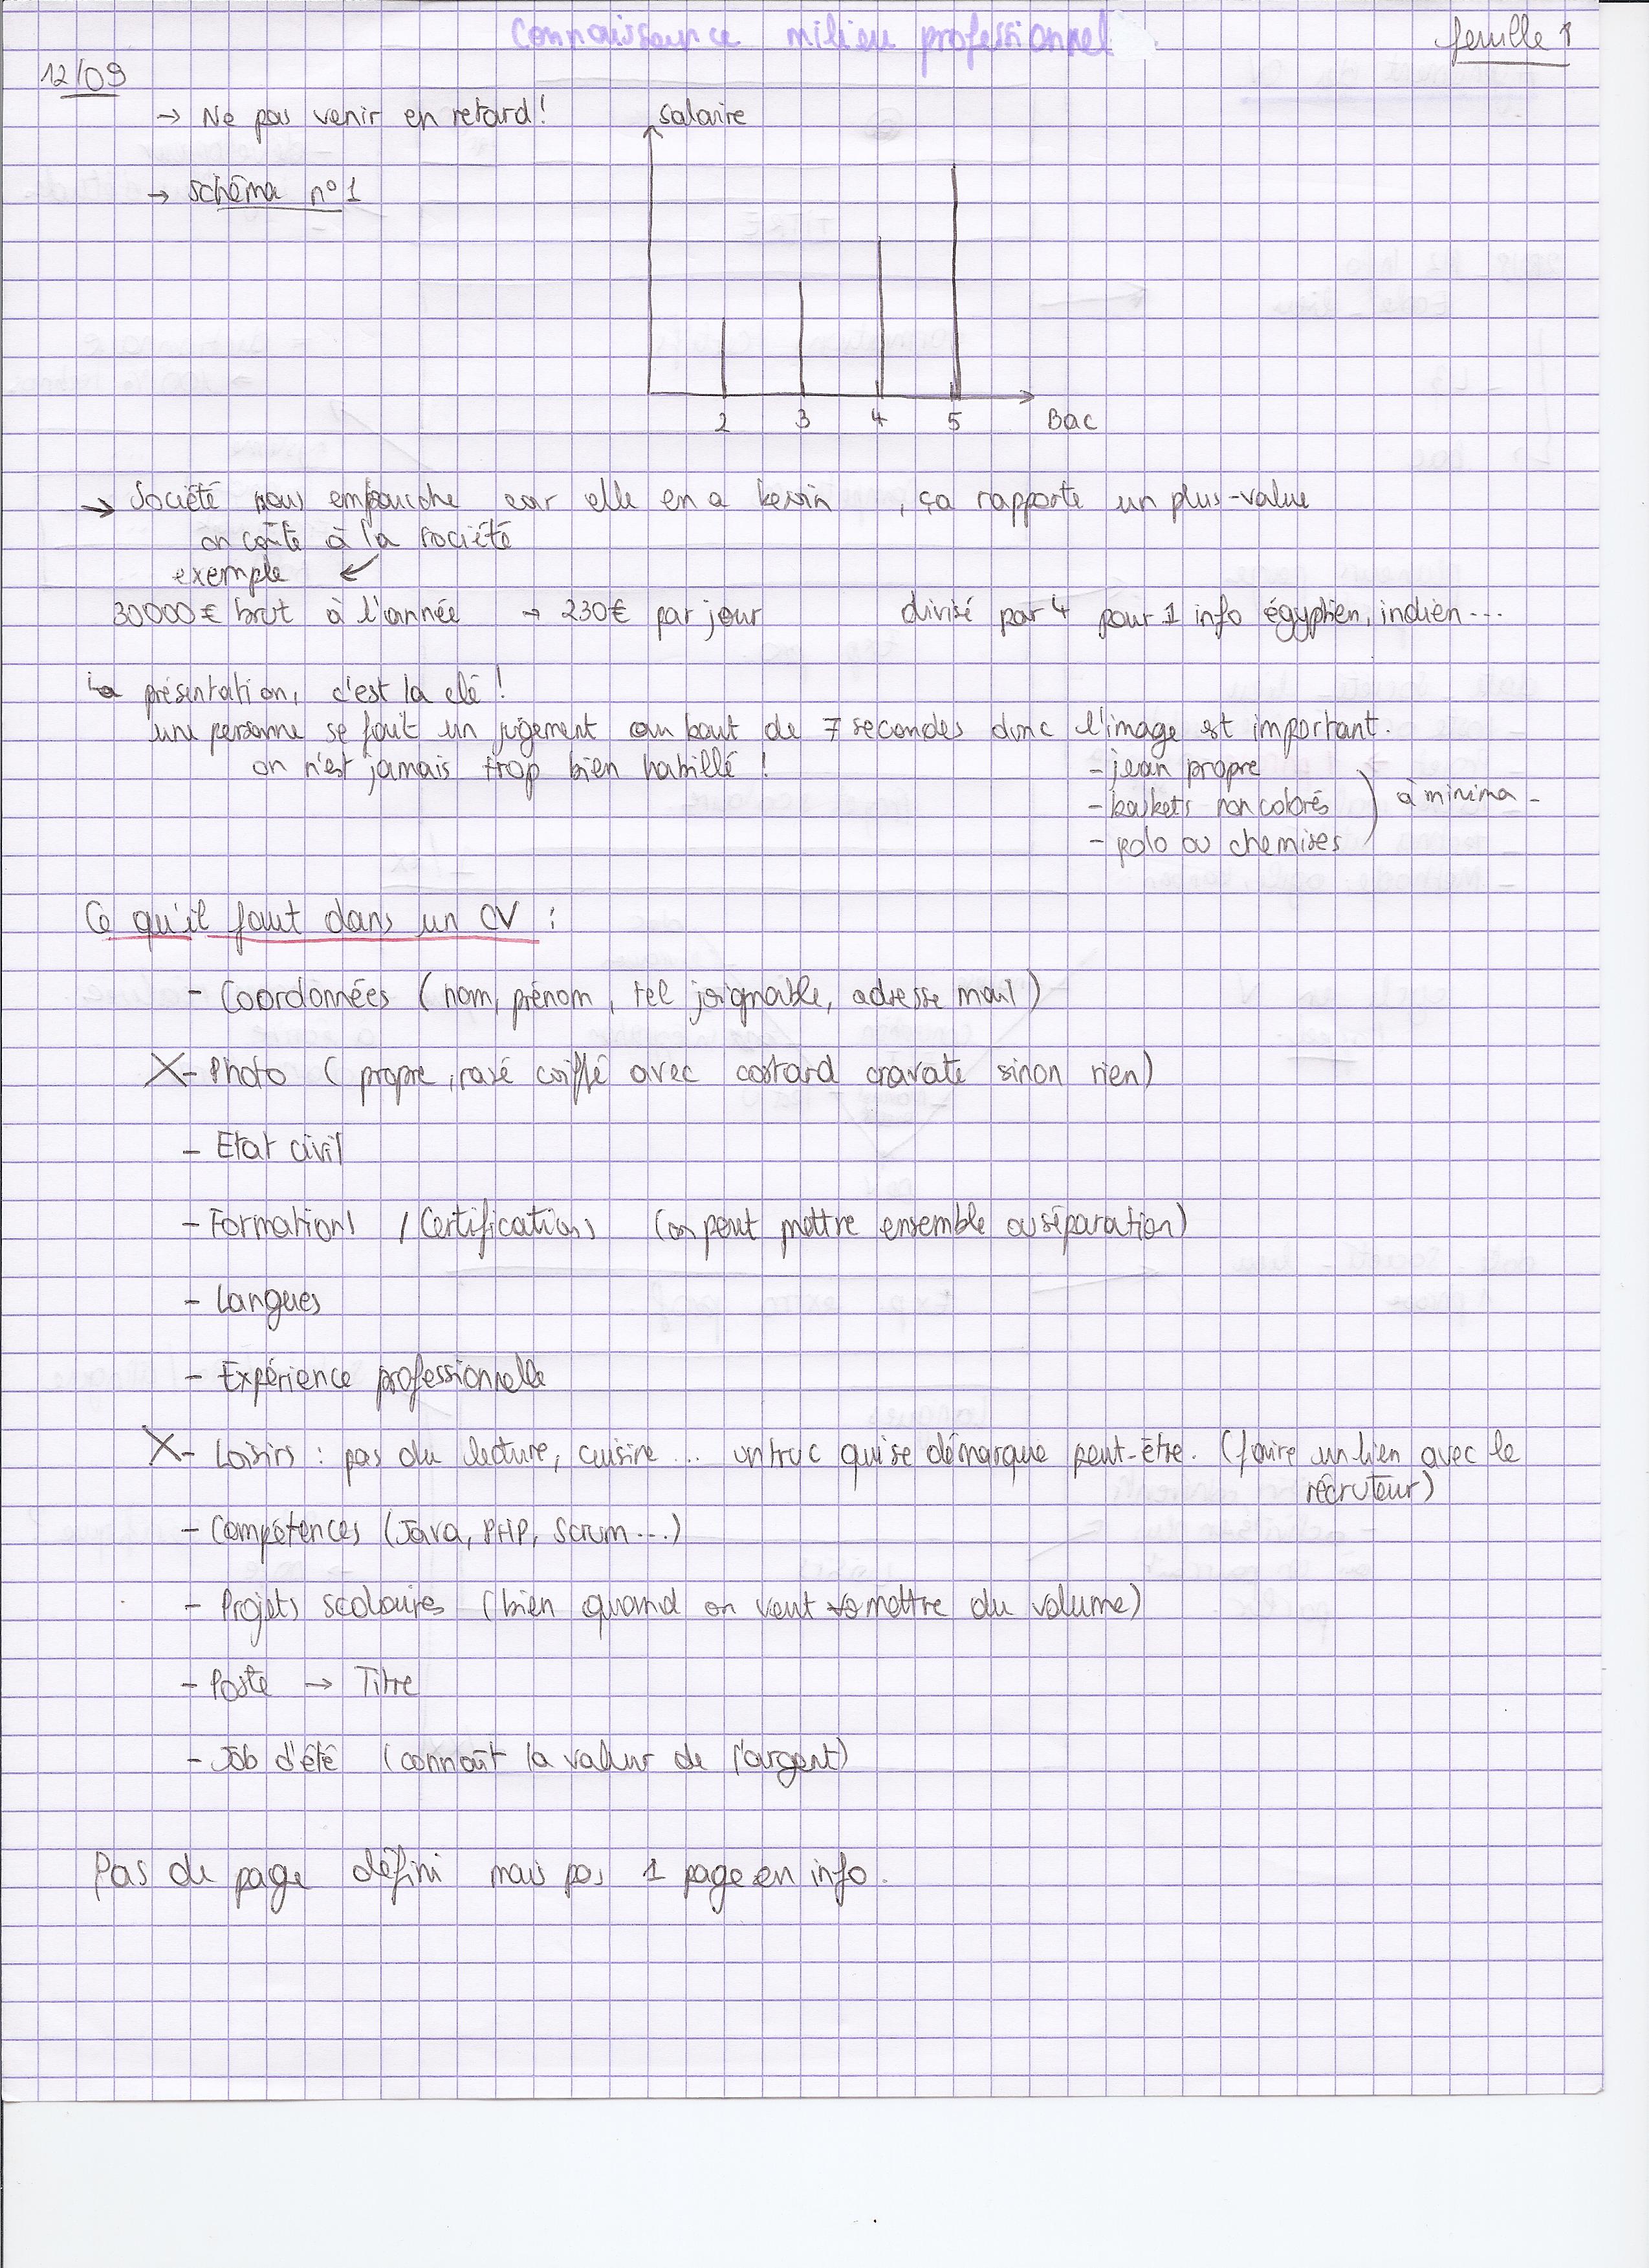 Connaissance milieu professionnel
feuille 1
12/09
→ Ne pas venir en retard !
→ schéma n°1
salaire
2 3 4 5 Bac
→ Société nous embauche car elle en a besoin , ça rapporte un plus-value
on coûte à la société
exemple
30000€ brut à l'année → 230€ par jour divisé par 4 pour 1 info égyptien, indien...
La présentation, c'est la clé !
une personne se fait un jugement au bout de 7 secondes donc l'image est important.
on n'est jamais trop bien habillé !
- jean propre
- baskets non colorés
- polo ou chemises
à minima -
Ce qu'il faut dans un CV :
- Coordonnées (nom, prénom, tel joignable, adresse mail)
X - Photo ( propre, rasé coiffé avec costard cravate sinon rien)
- Etat civil
- Formations / Certifications (on peut mettre ensemble ou séparation)
- Langues
- Expérience professionnelle
X - Loisirs : pas de lecture, cuisine ... un truc qui se démarque peut-être. (faire un lien avec le
recruteur)
- Compétences (Java, PHP, Scrum...)
- Projets scolaires (bien quand on veut mettre du volume)
- Poste → Titre
- Job d'été (connaît la valeur de l'argent)
Pas de page défini mais pas 1 page en info.